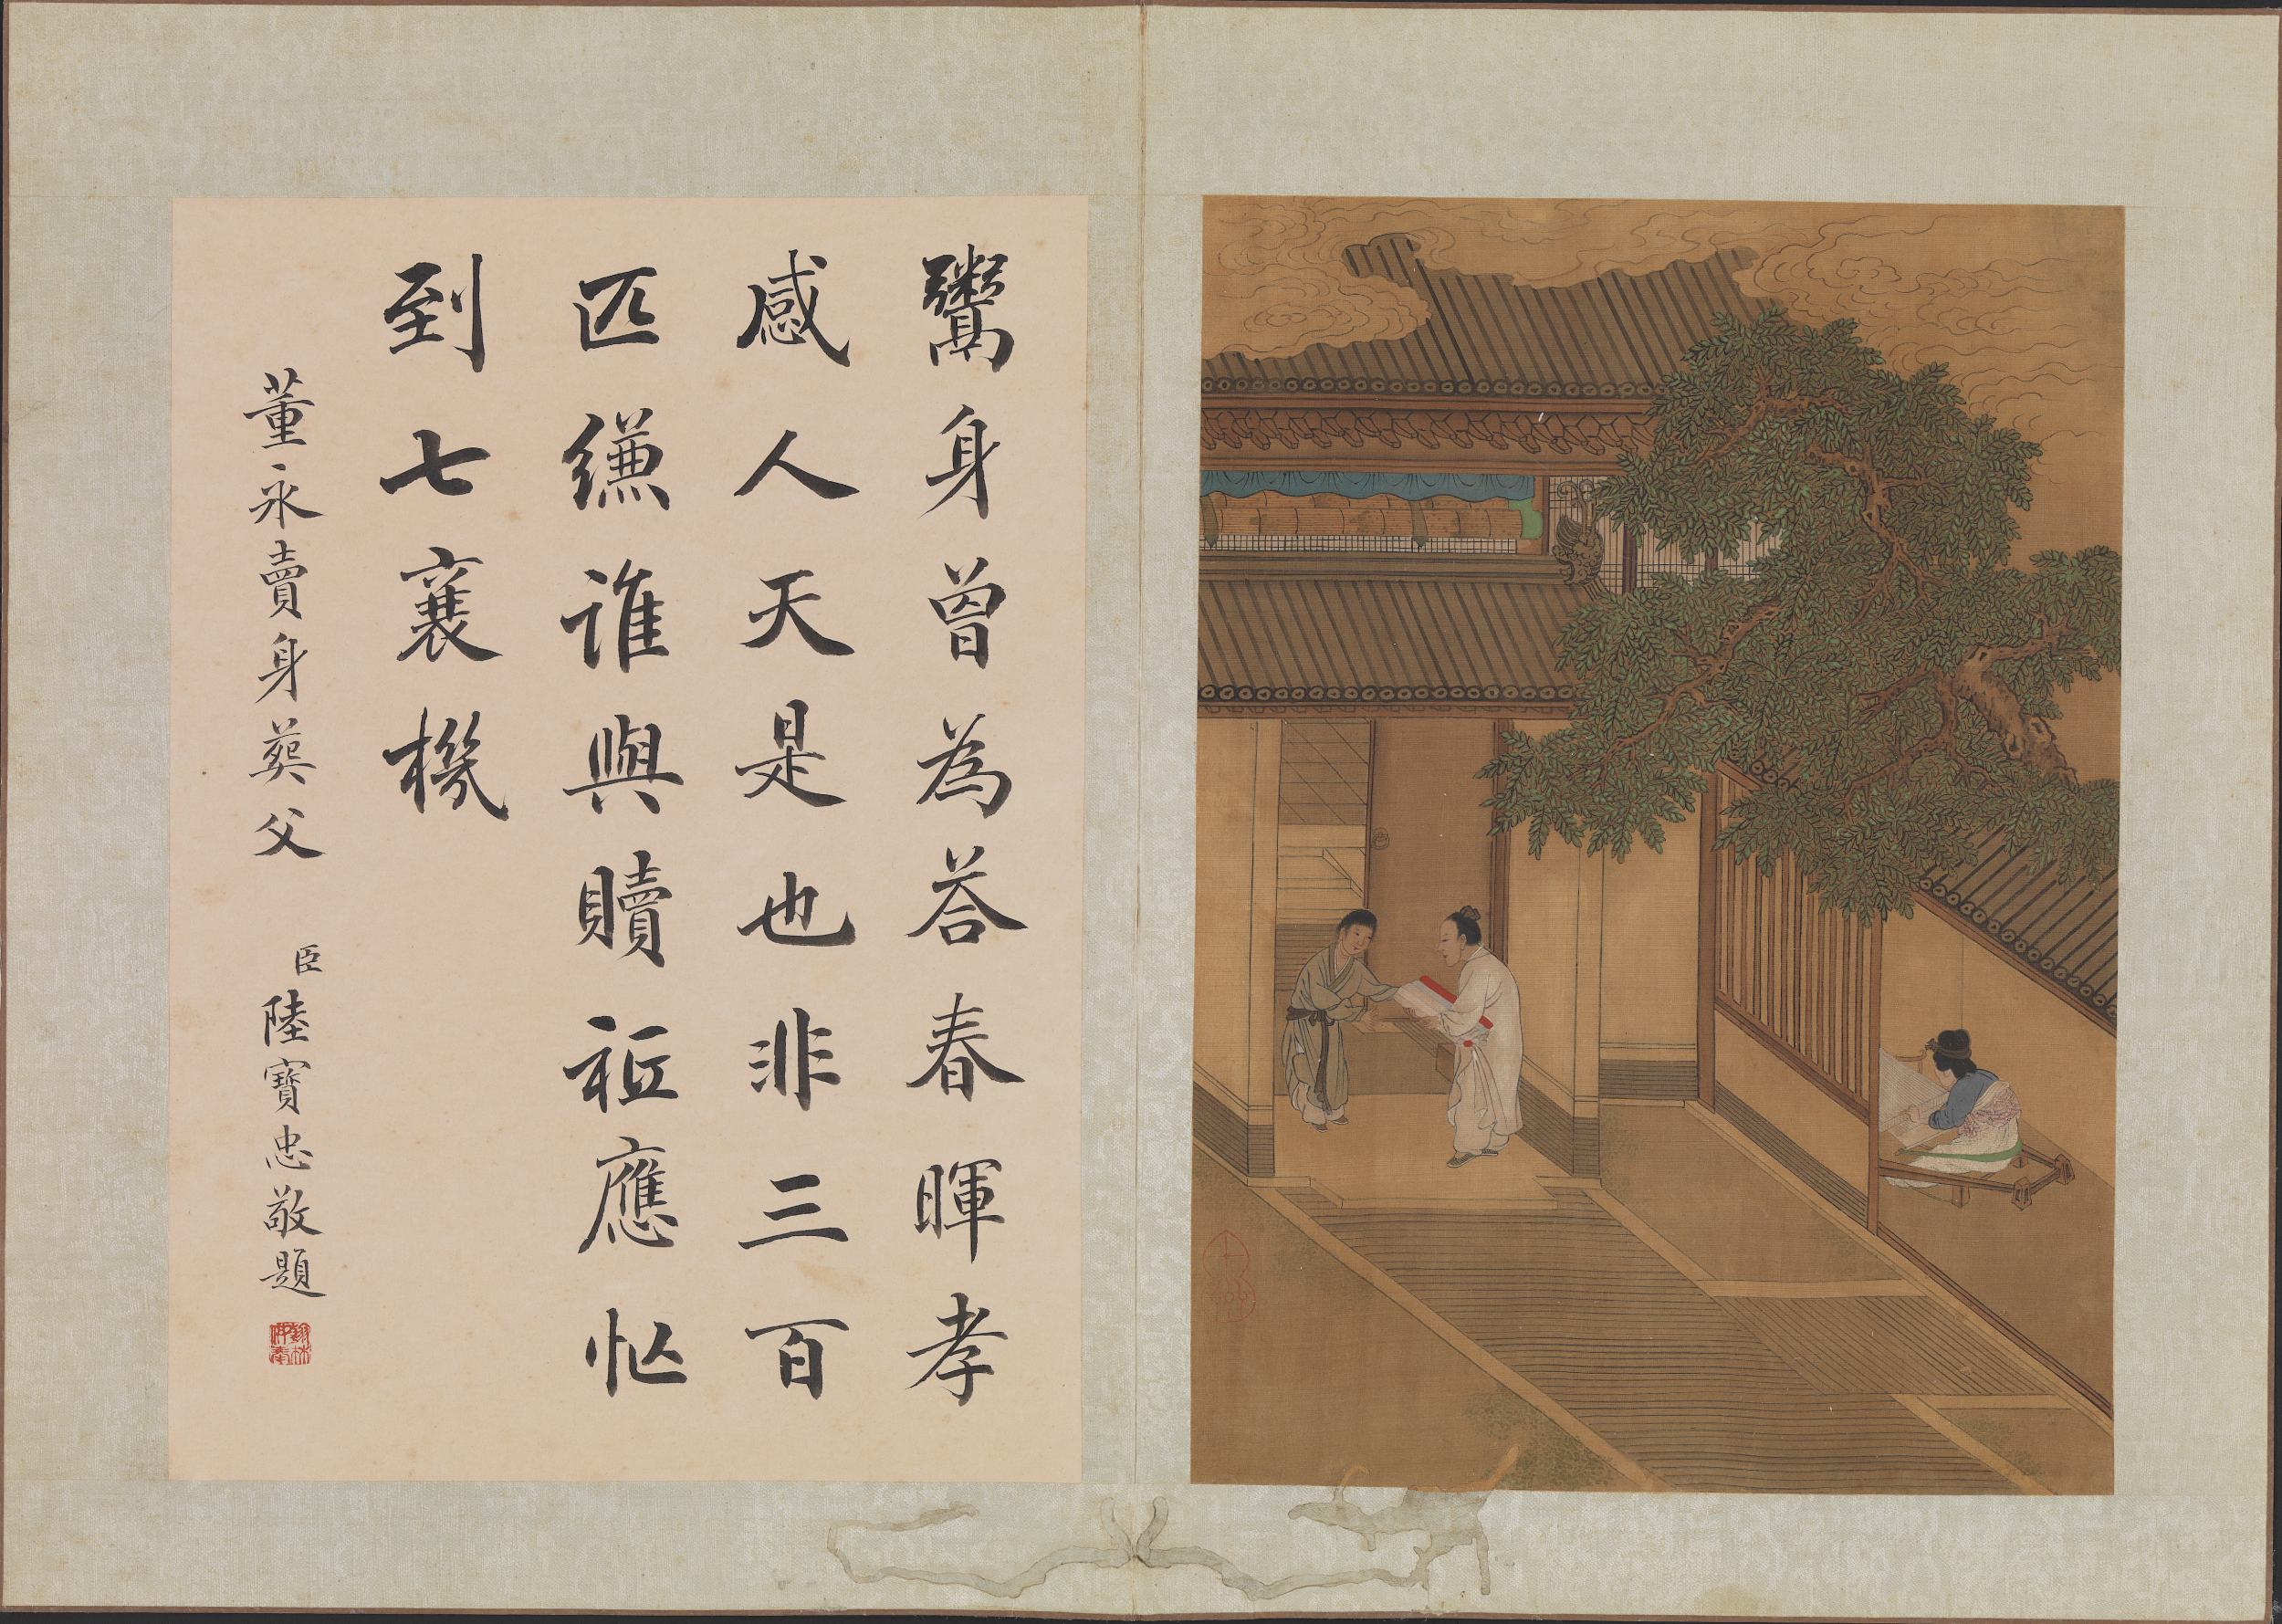 鬻身曾為荅春暉孝
感人天是也非三百
匹縑誰與贖秪應忙
到七襄機
董永賣身葬父
臣陸寶忠敬題